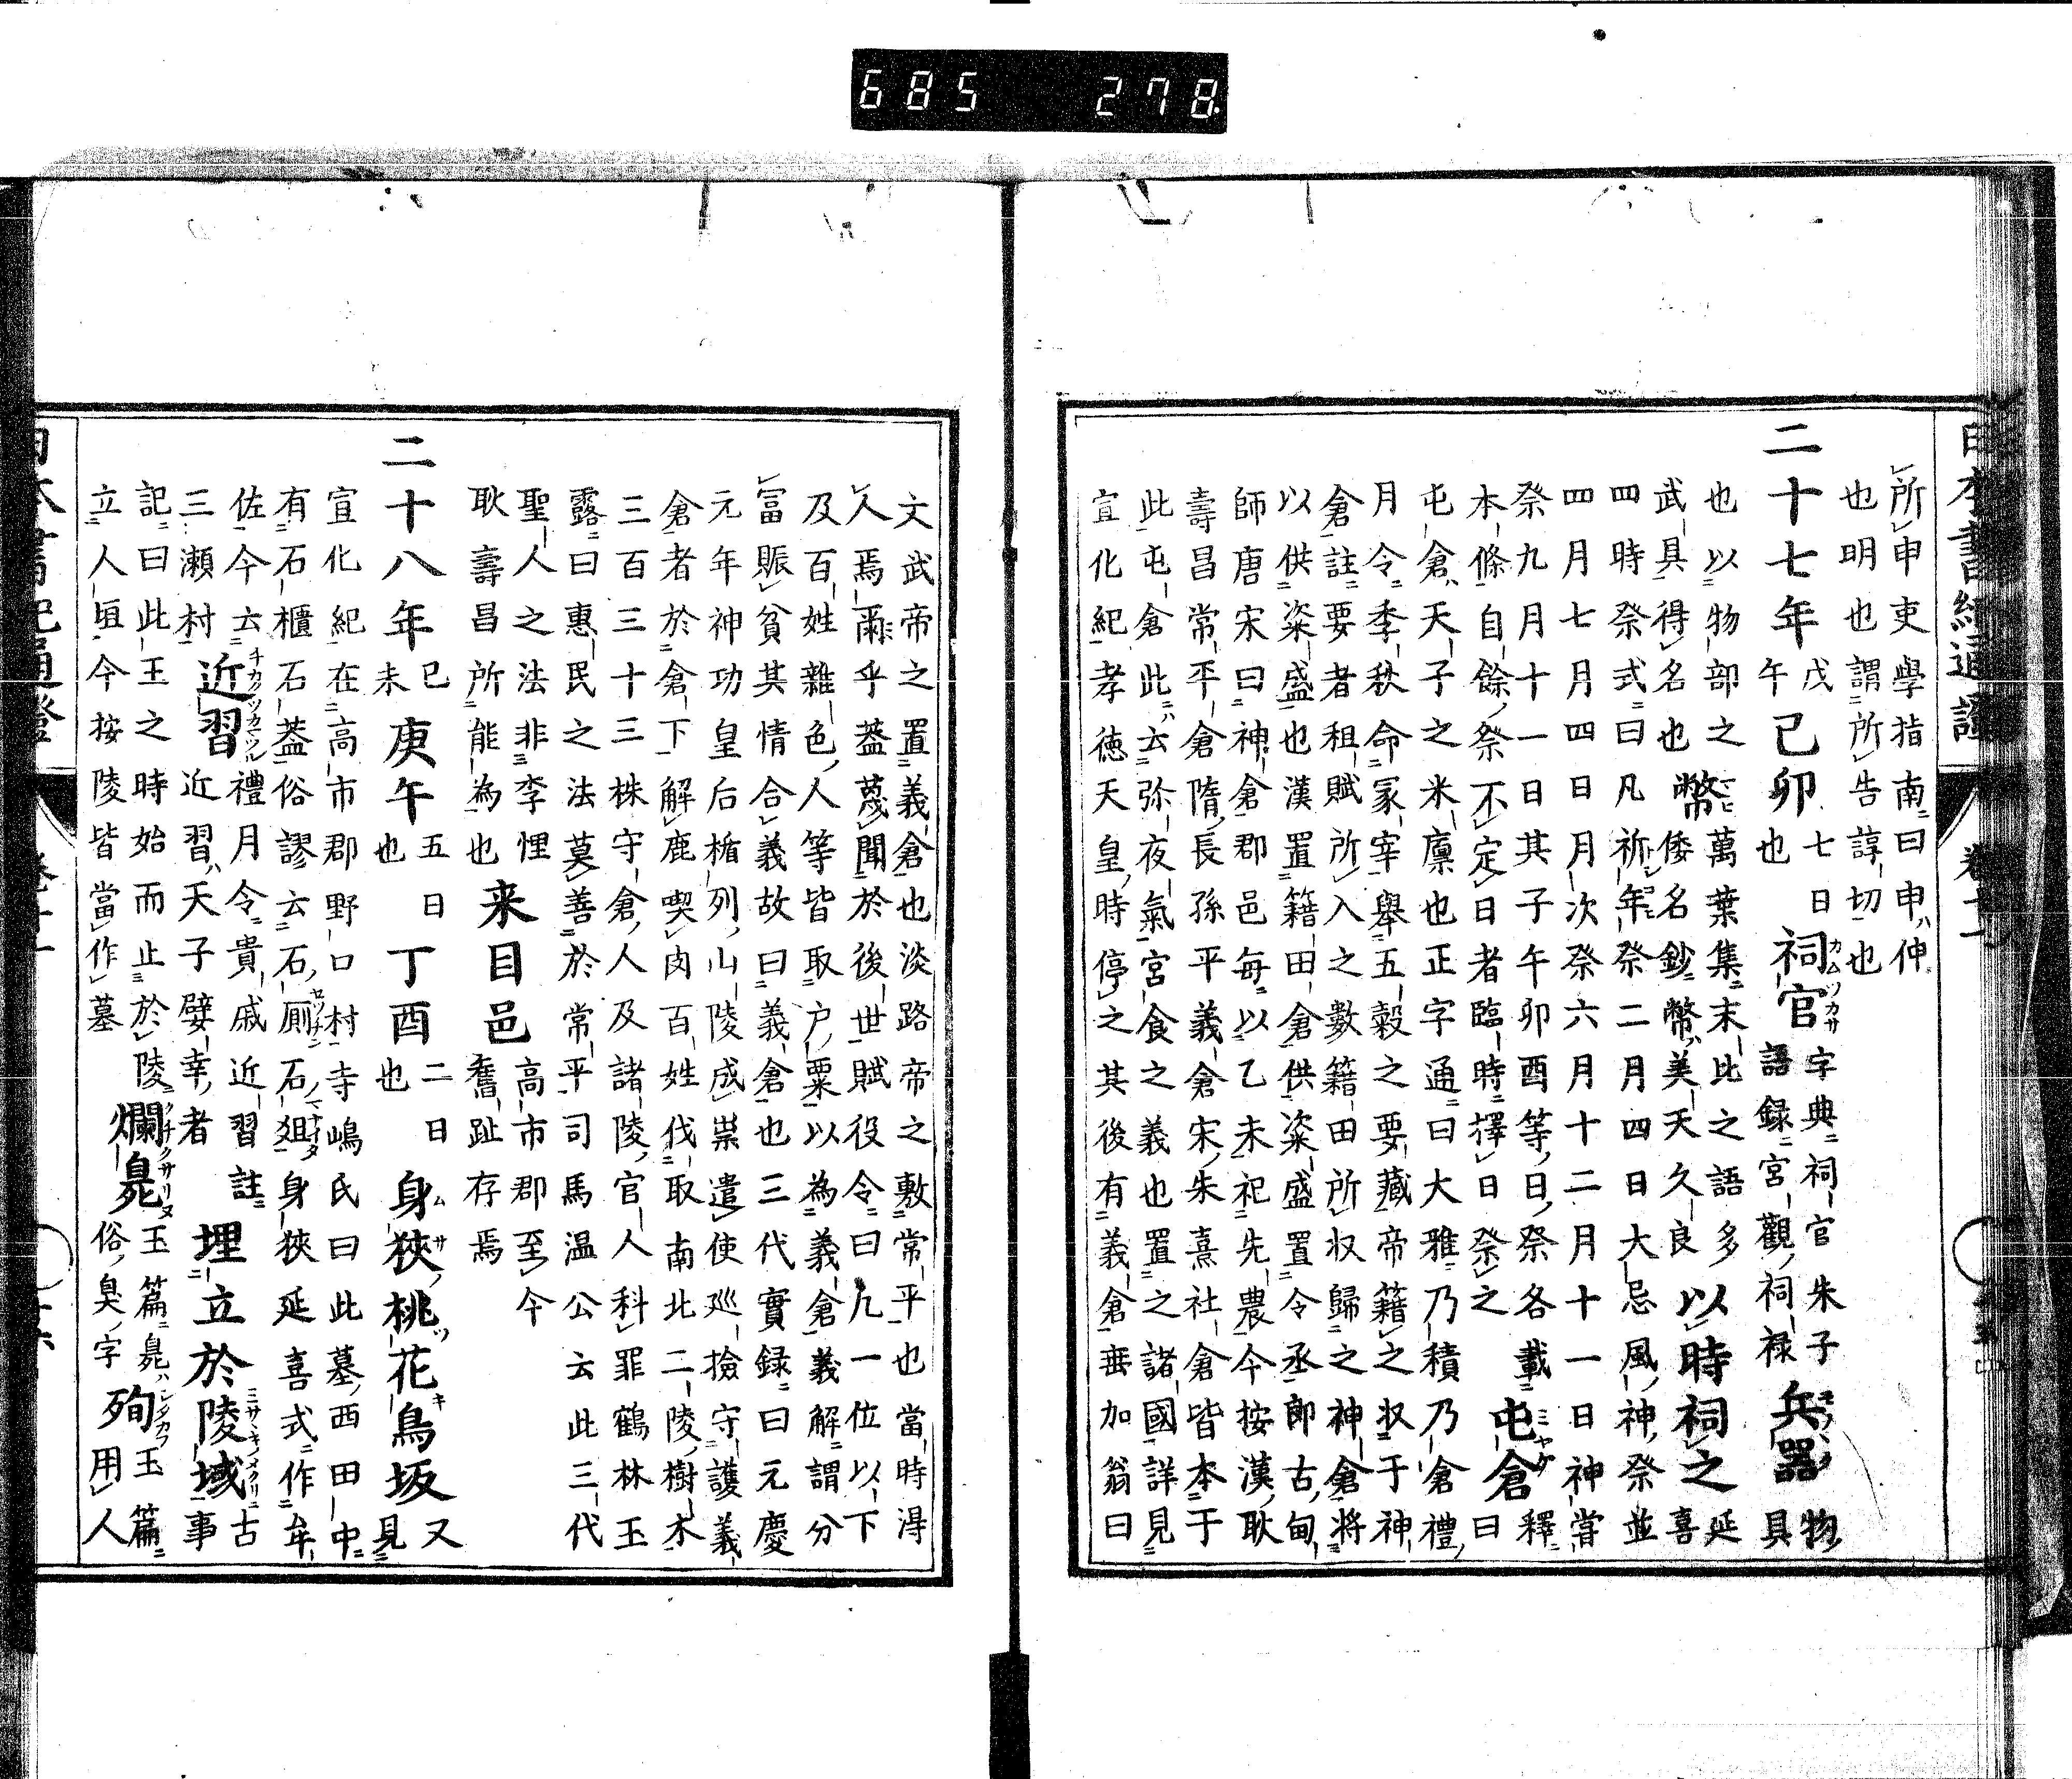 685 278
所申吏學指南曰申伸
也明也謂所告諄切也
二十七年戊午己卯七日也 祠官カムツカサ字典祠官朱子語録宮觀祠禄 兵器ツハモノ物具
也以物部之幣萬葉集末比之語多 以時祠之延喜
武具得名也 倭名鈔幣美天久良
四時祭式曰凡祈年祭二月四日大忌風神祭並
四月七月四日月次祭六月十二月十一日神嘗
祭九月十一日其子午卯酉等日祭各載 屯倉ミヤケ釋曰
本條自餘祭不定日者臨時擇日祭之
屯倉天子之米廩也正字通曰大雅乃積乃倉禮
月令季秋命冢宰舉五穀之要藏帝藉之收于神
倉註要者租賦所入之數籍田所收歸之神倉將
以供粢盛也漢置籍田倉供粢盛置令丞郎古甸
師唐宋曰神倉郡邑每以乙未祀先農今按漢耿
壽昌常平倉隋長孫平義倉宋朱熹社倉皆本于
此屯倉此云弥夜氣宮食之義也置之諸國詳見
宣化紀孝徳天皇時停之其後有義倉垂加翁曰
文武帝之置義倉也淡路帝之敷常平也當時得
人焉爾乎葢蔑聞於後世賦役令曰凡一位以下
及百姓雜色人等皆取户粟以為義倉義解謂分
冨賑貧其情合義故曰義倉也三代實録曰元慶
元年神功皇后楯列山陵成祟遣使巡撿守護義
倉者於倉下解鹿喫肉百姓伐取南北二陵樹木
三百三十三株守倉人及諸陵官人科罪鶴林玉
露曰惠民之法莫善於常平司馬温公云此三代
聖人之法非李悝 耿壽昌所能為也 来目邑高市郡至今舊趾存焉
二十八年己未庚午五日也 丁酉二日也 身狹桃花鳥坂ムサツキ又見
宣化紀在高市郡野口村寺嶋氏曰此墓西田中
有石櫃石葢俗謬云石厠石爼身狹延喜式作牟
佐今云三瀬村 近習チカクツカマツル禮月令貴戚近習註近習天子嬖幸者 埋立於陵域ミサヽキノメクリニ古事
記曰此王之時始而止於陵
立人垣今按陵皆當作墓 爛臰クチクサリヌ玉篇臰俗臭字 殉玉篇用人